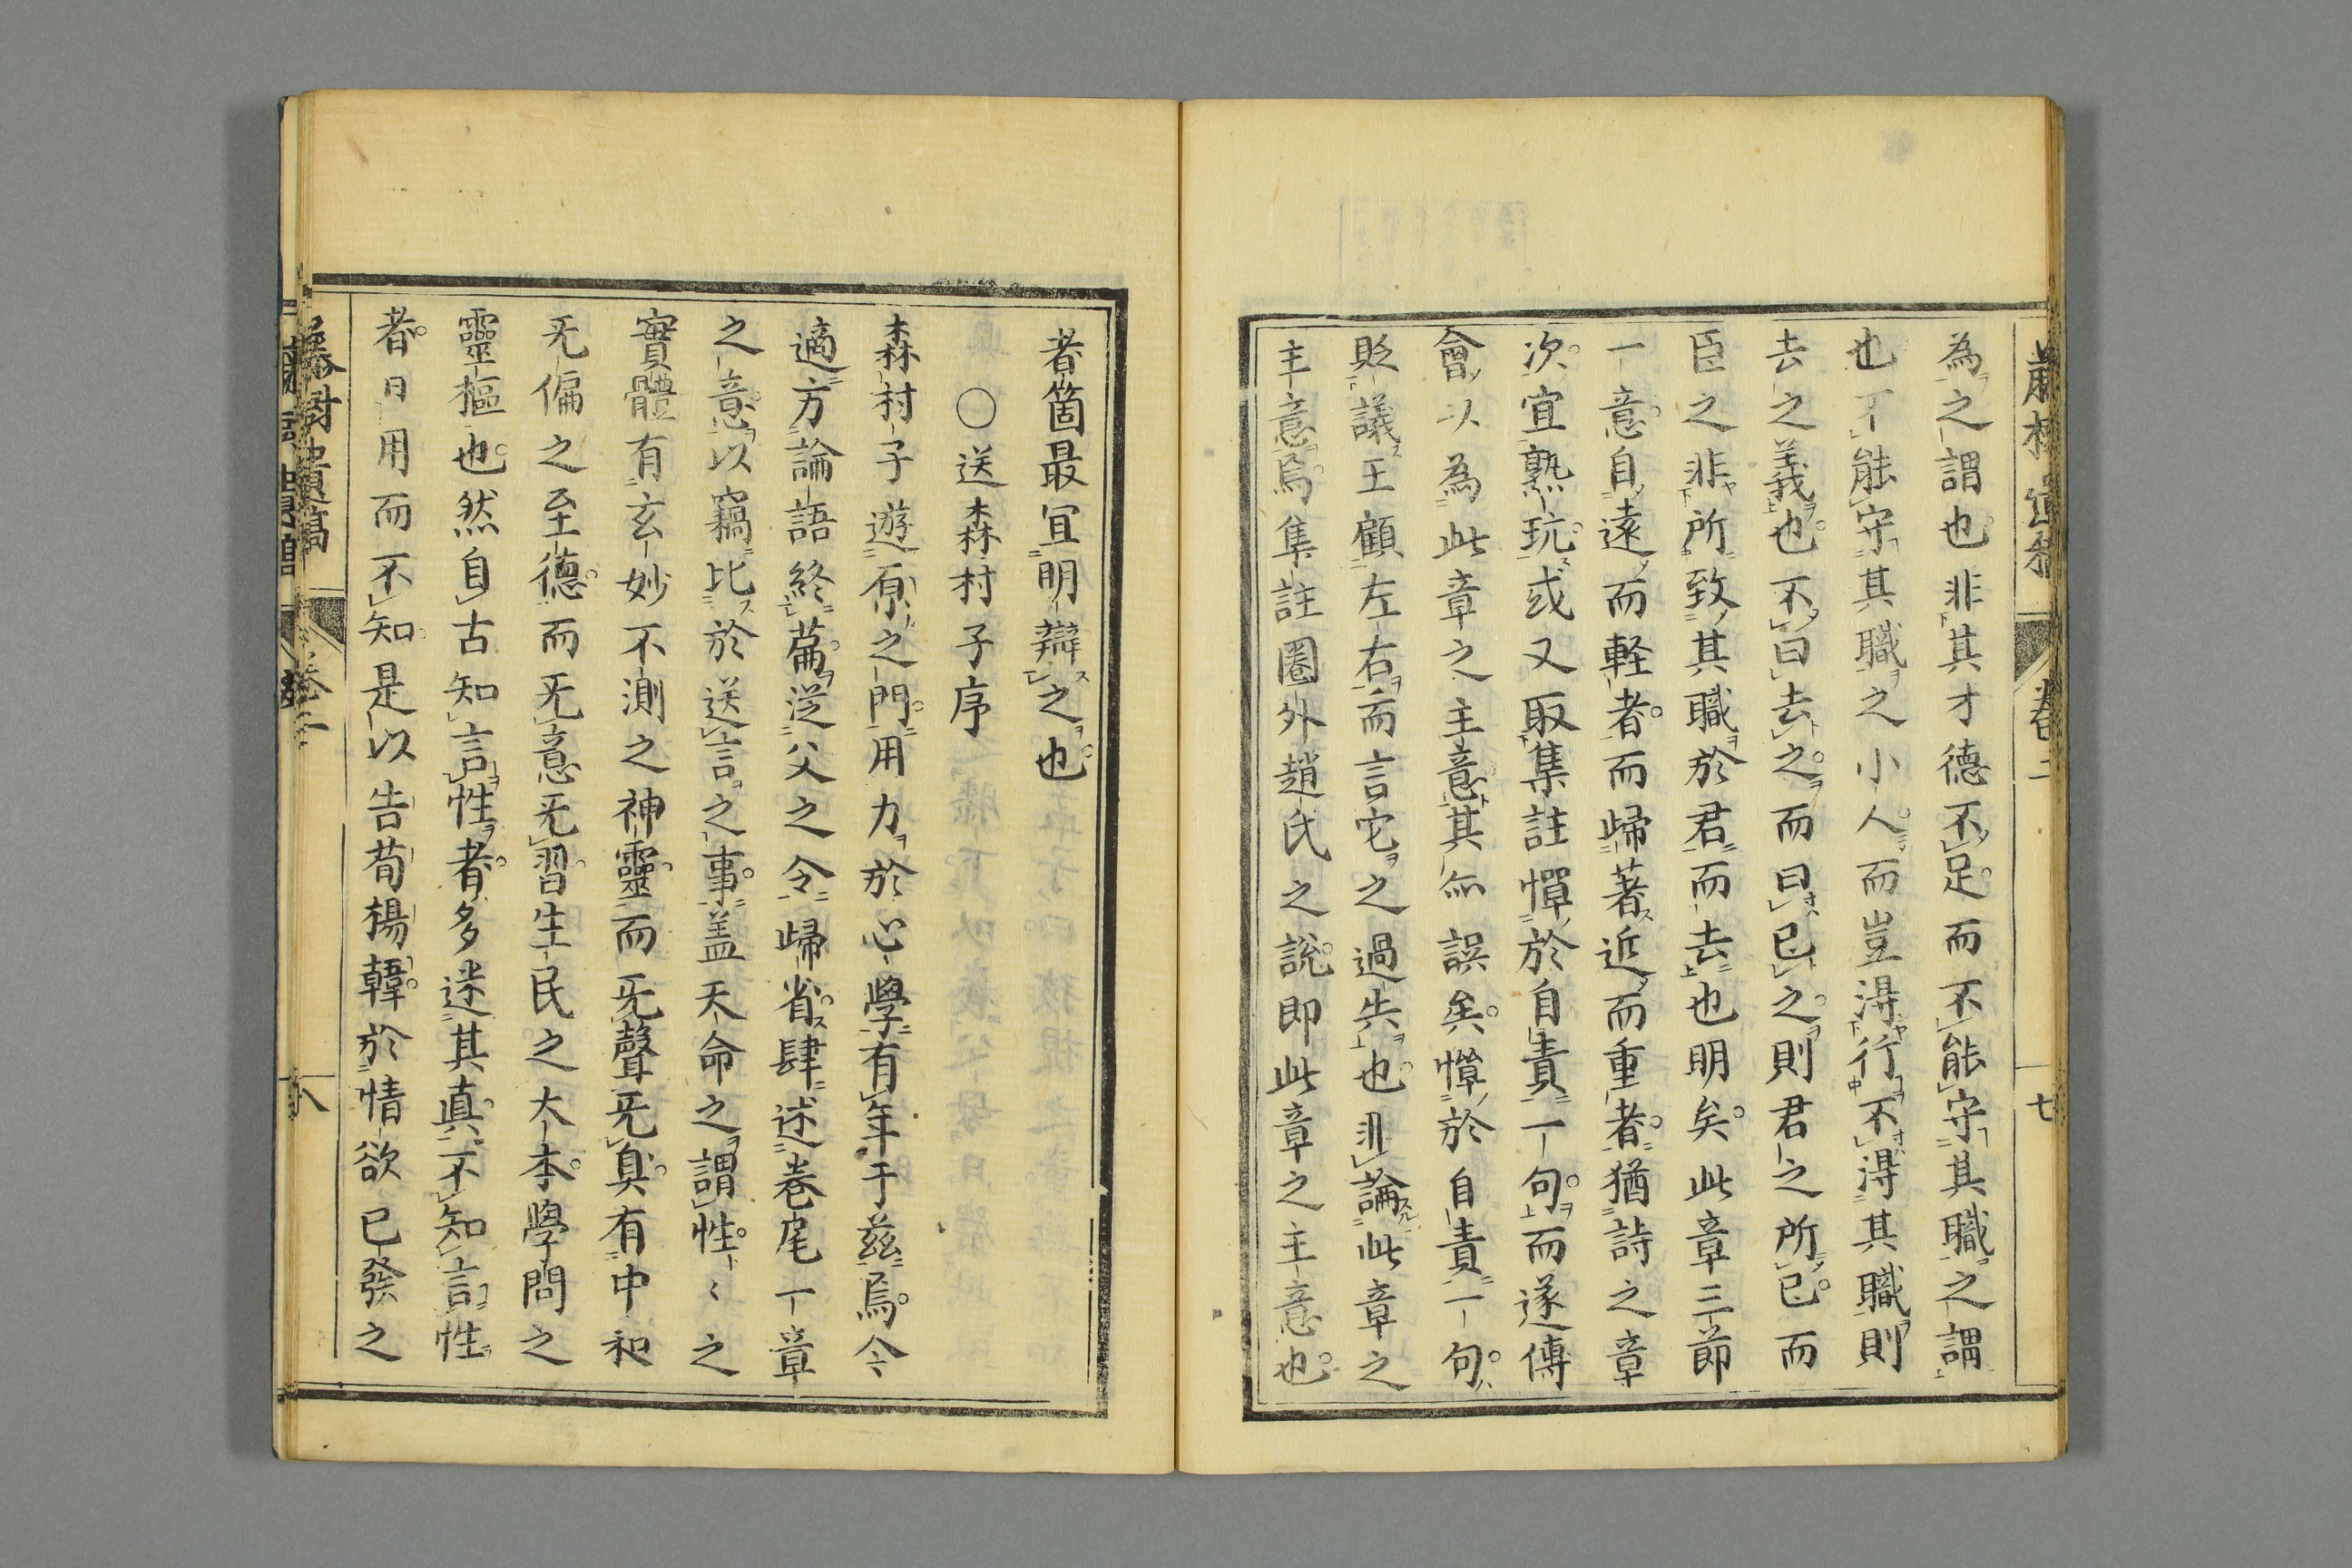 為之謂也非其才德不足而不能守其職之謂
也不能守其職之小人而豈得行不得其職則
去之義也不曰去之而曰已之則君之所已而
臣之非所致其職於君而去也明矣此章三節
一意自遠而軽者而歸著近而重者猶詩之章
次宜熟玩或又取集註憚於自責一句而遂傅
會以為此章之主意其亦誤矣憚於自責一句
貶議王顧左右而言它之過失也非論此章之
主意焉集註圏外趙氏之説即此章之主意也
者箇最宜明辯之也
○送森村子序
森村子遊原之門用力於心學有年于茲焉今
適方論語終篇從父之令歸省肆述卷尾一章
之意以竊比於送言之事蓋天命之謂性〻之
實體有玄妙不測之神靈而无聲无臭有中和
无偏之至德而无意无習生民之大本學問之
靈樞也然自古知言性者多迷其真不知言性
者日用而不知是以告荀楊韓於情欲已發之
藤樹遺稿 卷二 八